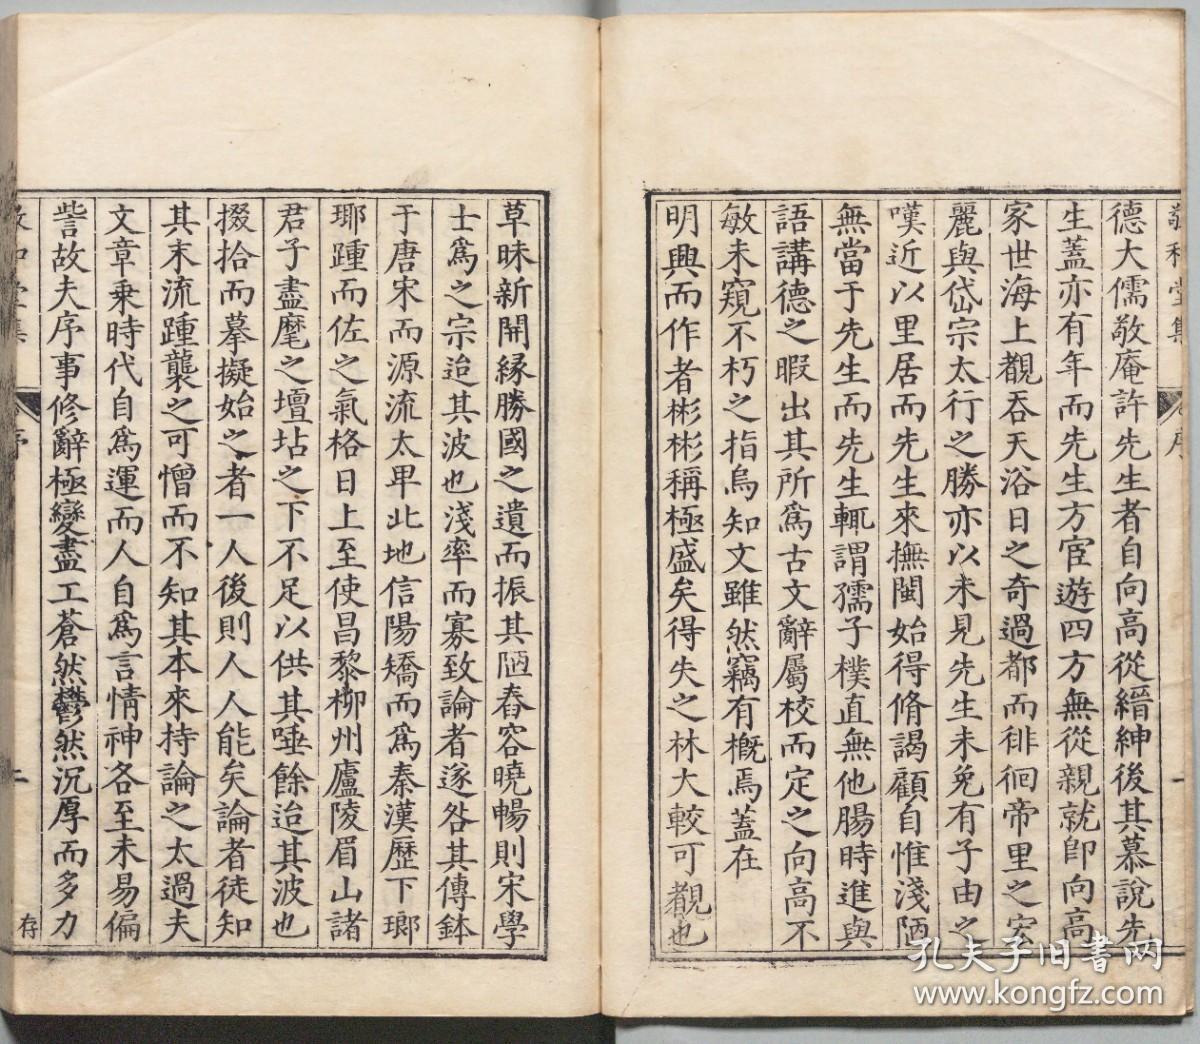 敬和堂集
序
一
德大儒敬庵許先生者自向高從縉紳後其慕說先
生蓋亦有年而先生方宦遊四方無從親就即向高
家世海上覩吞天浴日之奇過都而徘徊帝里之宏
麗與岱宗太行之勝亦以未見先生未免有子由之
嘆近以里居而先生來撫閩始得脩謁顧自惟淺陋
無當于先生而先生輒謂孺子樸直無他腸時進與
語講德之暇出其所爲古文辭屬校而定之向高不
敏未窺不朽之指烏知文雖然竊有槪焉蓋在
明興而作者彬彬稱極盛矣得失之林大較可覩也
草昧新開緣勝國之遺而振其陋舂容曉暢則宋學
士爲之宗迨其波也淺率而寡致論者遂咎其傳鉢
于唐宋而源流太卑北地信陽矯而爲秦漢歷下瑯
琊踵而佐之氣格日上至使昌黎柳州廬陵眉山諸
君子盡麾之壇坫之下不足以供其唾餘迨其波也
掇拾而摹擬始之者一人後則人人能矣論者徒知
其末流踵襲之可憎而不知其本來持論之太過夫
文章乗時代自爲運而人自爲言情神各至未易偏
訾故夫序事修辭極變盡工蒼然鬱然沉厚而多力
序
二
存
孔夫子旧书网
www.kongfz.com